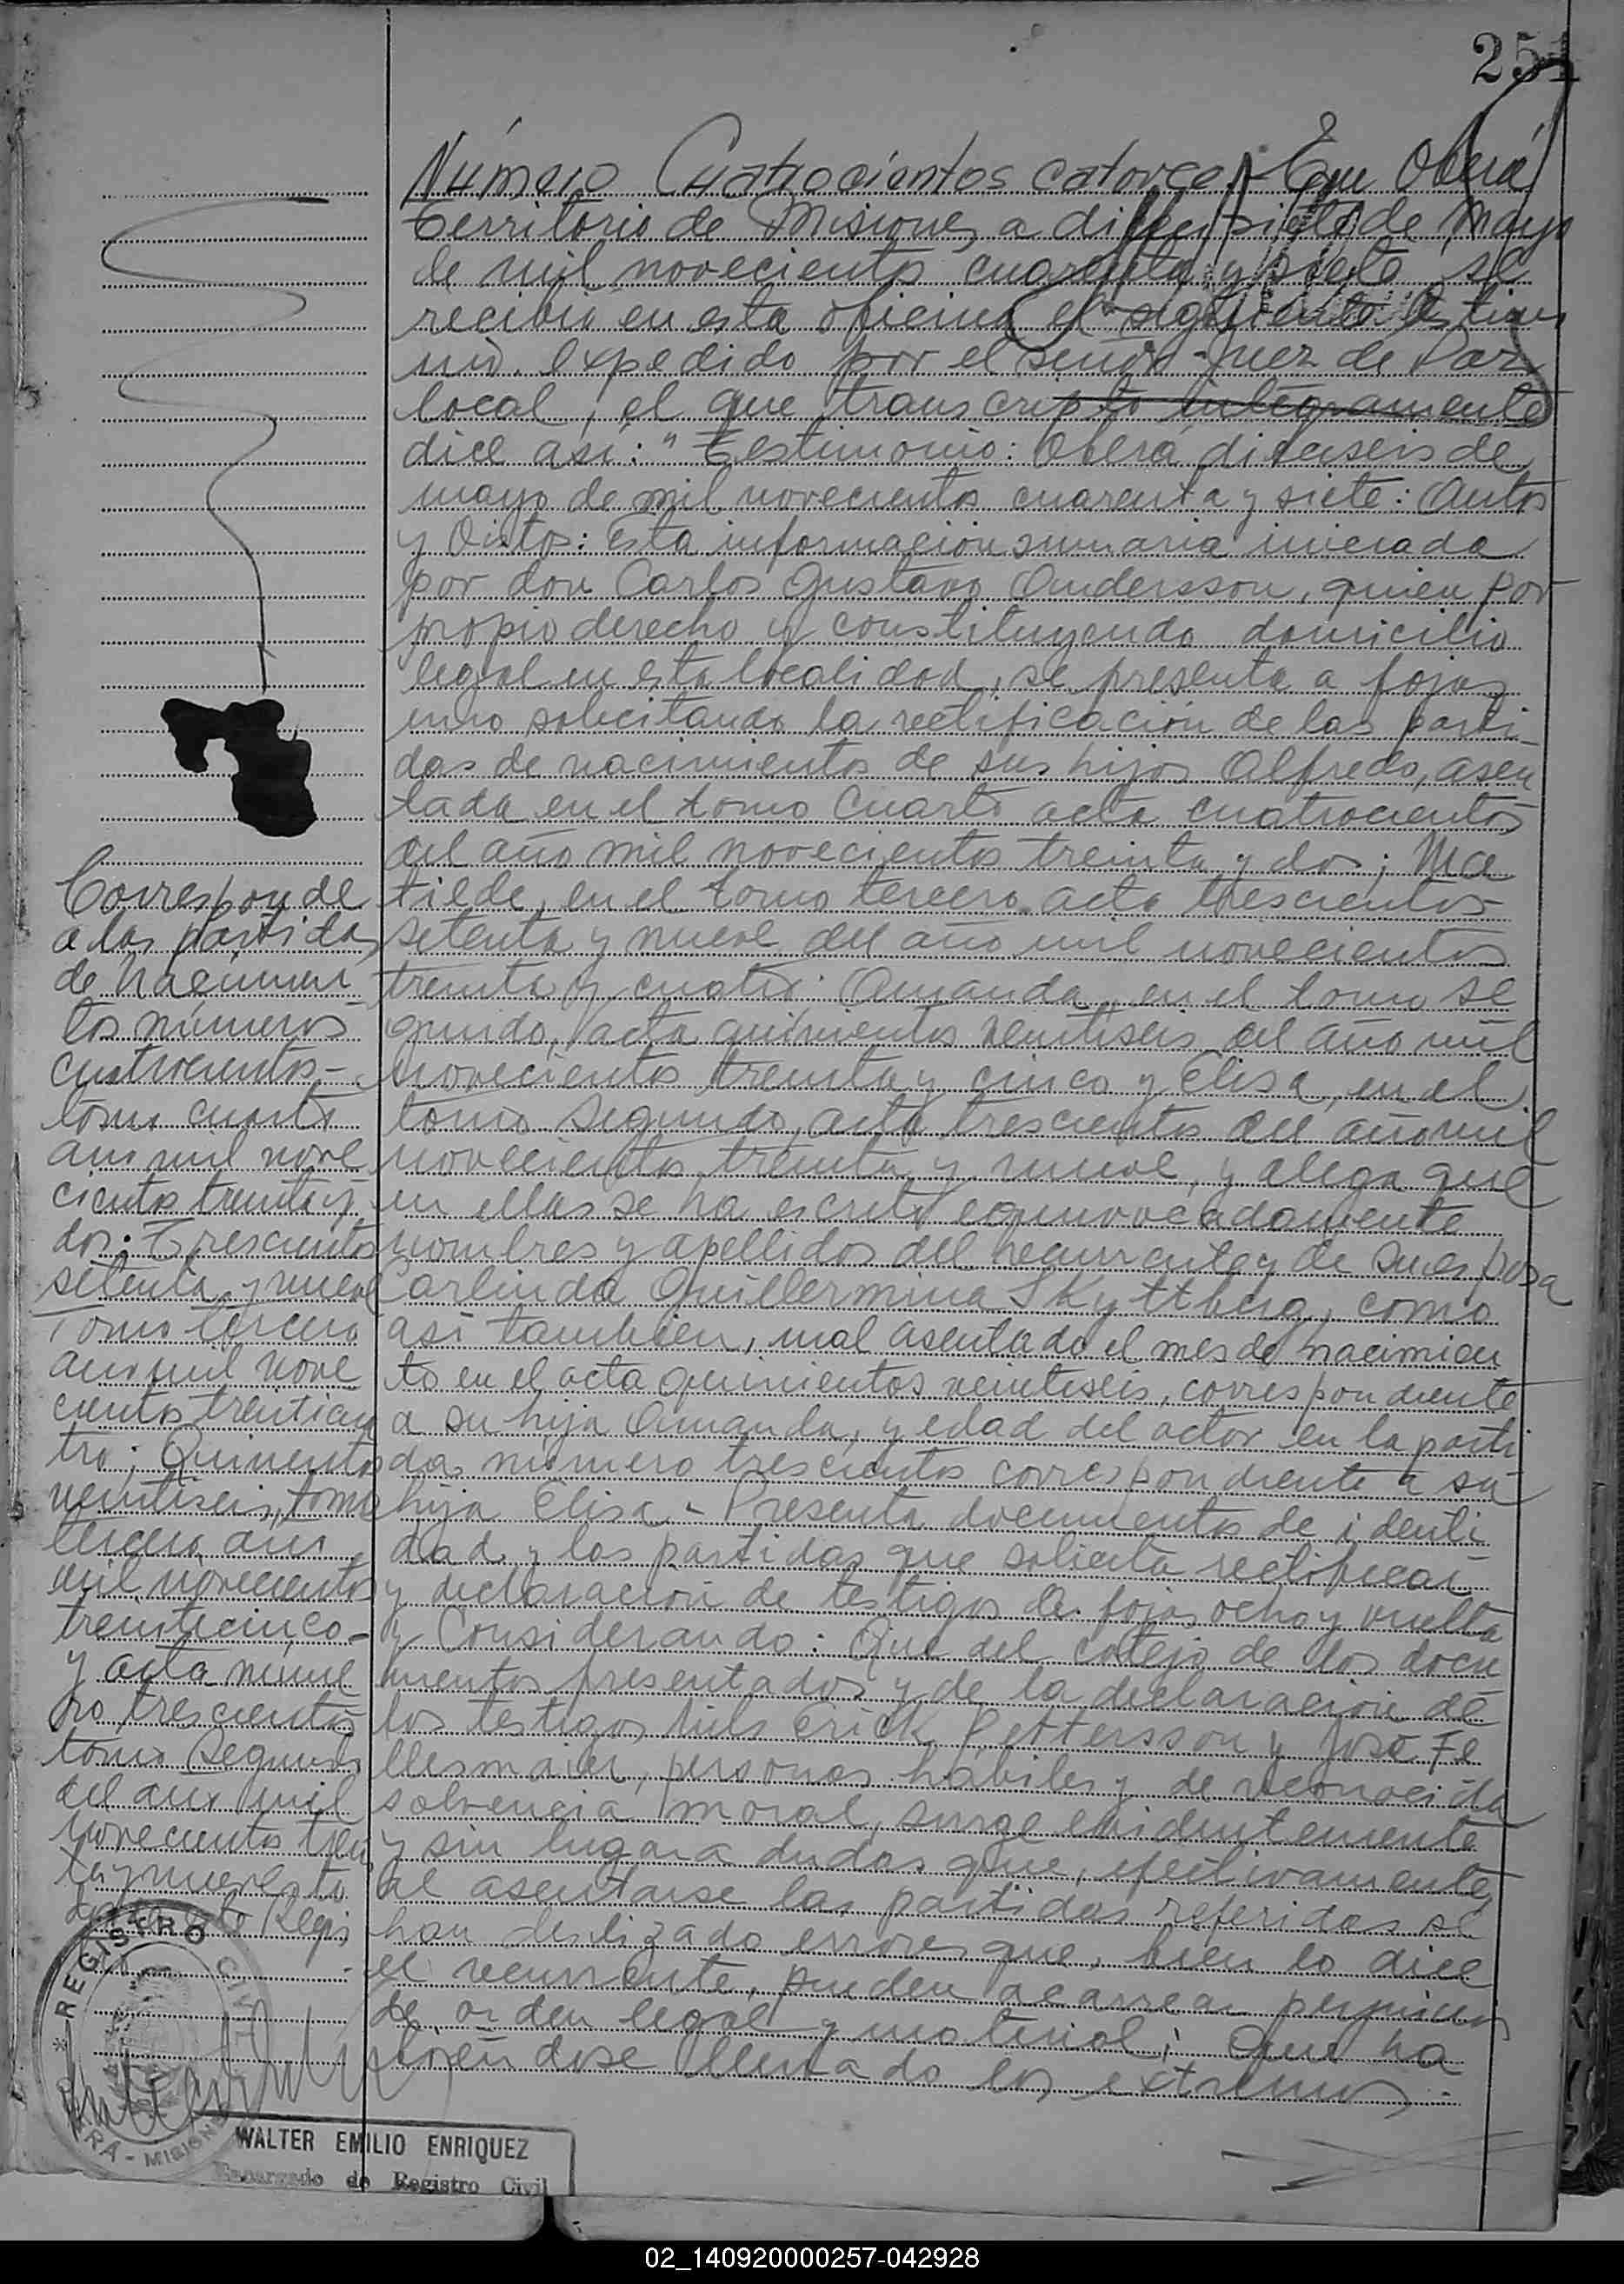 251
Número Cuatrocientos catorce. En Oberá
territorio de Misiones a diecisiete de mayo
de mil novecientos cuarenta y siete se
recibió en esta oficina el siguiente testimo
nio expedido por el señor Juez de Paz
local, el que transcripto integramente
dice así: "Testimonio: Oberá, dieciseis de
mayo de mil novecientos cuarenta y siete: Autos
y Vistos: Esta información sumaria iniciada
por don Carlos Gustavo Andersson, quien por
propio derecho y constituyendo domicilio
legal en esta localidad, se presenta a fojas
uno solicitando la rectificación de las parti-
das de nacimientos de sus hijos Alfredo, asen
tada en el tomo cuarto acta cuatrocientos
del año mil novecientos treinta y dos; Ma
tilde, en el tomo tercero acta trescientos
setenta y nueve del año mil novecientos
treinta y cuatro: Amanda, en el tomo se
gundo, acta quinientos veintiseis del año mil
novecientos treinta y cinco y Elisa, en el
tomo segundo, acta trescientos del año mil
novecientos treinta y nueve, y alega que
en ellas se ha escrito equivocadamente
nombres y apellidos del recurrente y de su esposa
Carlinda Guillermina Skyttberg, como
así tambien, mal asentado el mes de nacimien
to en el acta quinientos veintiseis, correspondiente
a su hija Amanda, y edad del actor en la parti
da número trescientos correspondiente a su
hija Elisa.- Presenta documentos de identi
dad y las partidas que solicita rectificar
y declaración de testigos de fojas ocho y vuelta
y Considerando: Que del cotejo de los docu
mentos presentados y de la declaración de
los testigos Nils Erick Pettersson y José Fe
llesmaier, personas hábiles y de reconocida
solvencia moral, surge evidentemente
y sin lugar a dudas que, efectivamente,
al asentarse las partidas referidas se
han deslizado errores que, bien lo dice
el recurrente, pueden acarrear perjuicios
de orden legal y material; Que ha
biéndose llenado los extremos
Corresponde
a las partidas
de Nacimien
tos números
cuatrocientos-
tomo cuarto
año mil nove
cientos treinta y
dos; Trescientos
setenta y nueve
Tomo tercero
año mil nove
cientos treinticua
tro; Quinientos
veintiseis, tomo
tercero año
mil novecientos
treinticinco-
y acta núme
ro trescientos
tomo segundo
del año mil
novecientos trein
ta y nueve, to
dos de este Regis
REGISTRO CIVIL
OBERÁ - MISIONES
WALTER EMILIO ENRIQUEZ
Encargado de Registro Civil
02_140920000257-042928